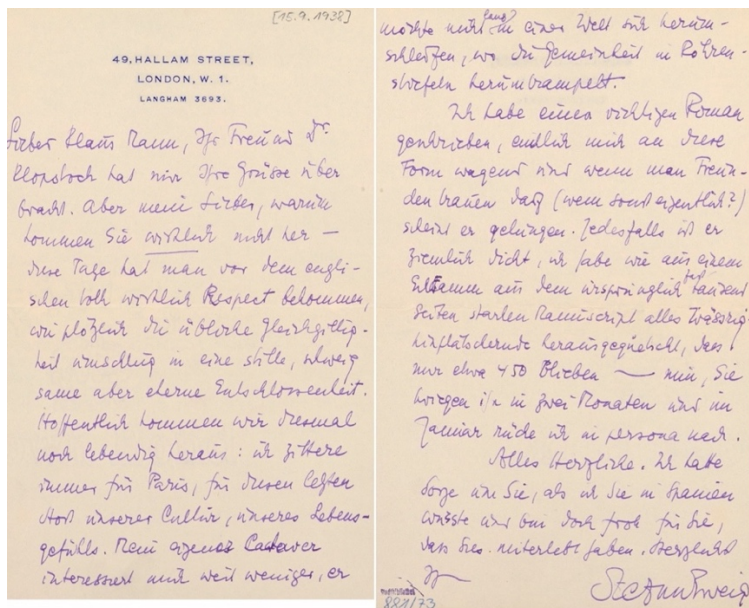 [15.9.1938]
49, HALLAM STREET,
LONDON, W. 1.
LANGHAM 3693.
Lieber Klaus Mann, Ihr Freund Dr.
Klopstock hat mir Ihre Grüsse über
bracht. Aber mein Lieber, warum
kommen Sie wirklich nicht her —
diese Tage hat man vor dem engli-
schen Volk wirklich Respect bekommen,
wie plötzlich die übliche Gleichgiltig-
keit umschlug in eine stille, schweig
same aber eherne Entschlossenheit.
Hoffentlich kommen wir diesmal
noch lebendig heraus: ich zittere
immer für Paris, für diesen letzten
Hort unserer Cultur, unseres Lebens-
gefühls. Mein eigener Cadaver
interessiert mich weit weniger, er
möchte nicht lang in einer Welt sich herum-
schleifen, wo die Gemeinheit in Röhren-
stiefeln herumtrampelt.
Ich habe einen richtigen Roman
geschrieben, endlich mich an diese
Form wagend und wenn man Freun-
den trauen darf (wem sonst eigentlich?)
scheint er gelungen. Jedesfalls ist er
ziemlich dicht, ich habe wie aus einem
Schwamm aus dem ursprünglich tausend
Seiten starken Manuscript alles Wässrig
hinplätschernde herausgequetscht, dass
nur etwa 450 blieben — nun, Sie
kriegen ihn in zwei Monaten und im
Januar rücke ich in persona nach.
Alles Herzliche. Ich hatte
Sorge um Sie, als ich Sie in Spanien
wusste und bin doch froh für Sie,
dass Sies miterlebt haben. Herzlichst
Ihr
Stefan Zweig
881/73